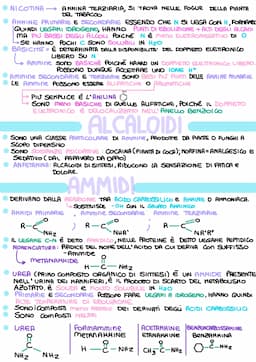 NICOTINA → AMMINA TERZIARIA, SI TROVA NELLE FOGLIE DELLA PIANTA
DEL TABACCO
AMMINE PRIMARIE E SECONDARIE ESSENDO CHE N SI LEGA CON H, FORMANO
QUINDI LEGAMI IDROGENO, HANNO PUNTI DI EBOLLIZIONE + ALTI DEGLI ALCANI
MA PIÙ BASSI DEGLI ALCOLI POICHÈ N È MENO ELETTRONEGATIVO DI O
SE HANNO POCHI C SONO SOLUBILI IN H2O
BASICHE → È DETERMINATA DALLA DISPONIBILITÀ DEL DOPPIETTO ELETTRONICO
LIBERO DELL'N
AMMINE SONO BASICHE POICHÈ HANNO UN DOPPIETTO ELETTRONICO LIBERO
POSSONO DUNQUE ACCETTARE UNO IONE H+
AMMINE SECONDARIE E TERZIARIE SONO BASI PIÙ FORTI DELLE AMMINE PRIMARIE
LE AMMINE POSSONO ESSERE ALIFATICHE O AROMATICHE
PIÙ SEMPLICE È L'ANILINA
SONO MENO BASICHE DI QUELLE ALIFATICHE, POICHÈ IL DOPPIETTO
ELETTRONICO È DELOCALIZZATO NELL'ANELLO BENZENICO
ALCALOIDI
SONO UNA CLASSE PARTICOLARE DI AMMINE, PRODOTTE DA PIANTE O FUNGHI A
SCOPO DIFENSIVO
SONO SOSTANZE PSICOATTIVE: COCAINA (PIANTA DI COCA), MORFINA = ANALGESICO E
SEDATIVO (DAL PAPAVERO DA OPPIO)
ANFETAMINA: ALCALOIDI DI SINTESI, RIDUCONO LA SENSAZIONE DI FATICA E
DOLORE.
AMMIDI
DERIVANO DALLA REAZIONE TRA ACIDO CARBOSSILICO E AMMINE O AMMONIACA.
SOSTITUISCE -OH CON IL GRUPPO AMMINICO
AMMIDI PRIMARIE, AMMIDE SECONDARIE, AMMIDE TERZIARIE.
R-C O NH2 R-C O NHR' R-C O NR'R"
IL LEGAME C-N È DETTO AMMIDICO, NELLE PROTEINE È DETTO LEGAME PEPTIDICO
NOMENCLATURA: RADICE DEL NOME DELL'ACIDO DA CUI DERIVA CON SUFFISSO
-AMMIDE
METANAMMIDE
H-C O NH2
UREA (PRIMO COMPOSTO ORGANICO DI SINTESI) È UN AMMIDE PRESENTE
NELL'URINA DEI MAMMIFERI, È IL PRODOTTO DI SCARTO DEL METABOLISMO
AZOTATO, È SOLIDO E MOLTO SOLUBILE IN H2O
PRIMARIE E SECONDARIE POSSONO FARE LEGAMI A IDROGENO, HANNO QUINDI
ALTE TEMPERATURE DI EBOLLIZIONE
SONO I COMPOSTI MENO REATTIVI DEI DERIVATI DEGLI ACIDI CARBOSSILICI
SONO COMPOSTI NEUTRI
UREA FORMAMMIDE ACETAMMIDE
METANAMMIDE ETANAMMIDE BENZAMMIDE
NH2 NH2 H-C NH2 CH3-C NH2 C-NH2